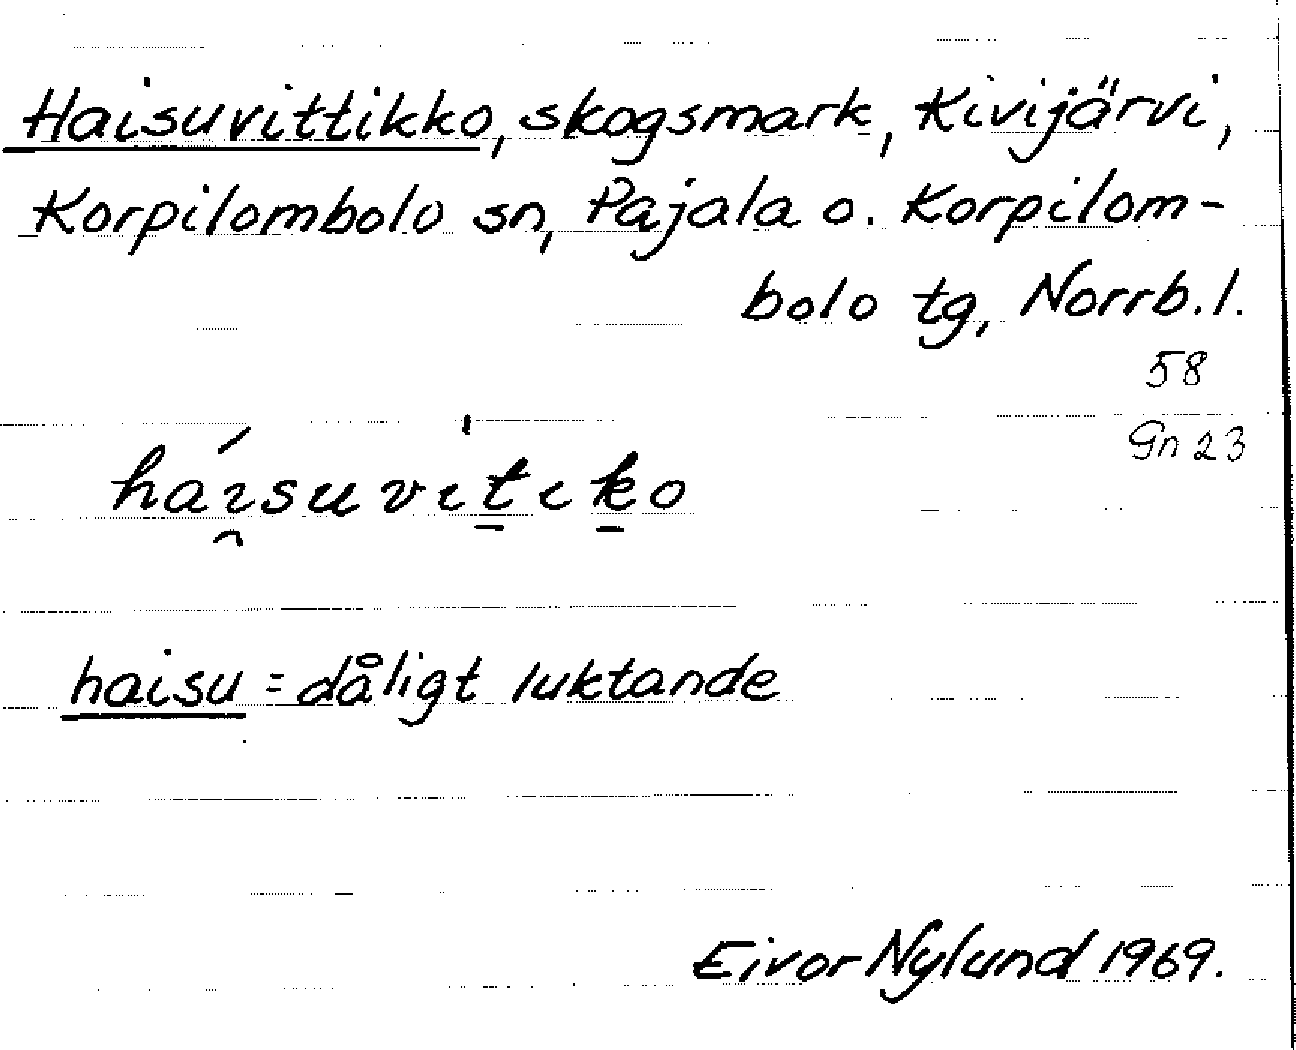 Haisuvittikko, skogsmark, Kivijärvi,
Korpilombolo sn, Pajala o. Korpilom-
bolo tg, Norrb. l.
58
Gn 23
há̯isuvi̍t̠ik̠o
haisu = dåligt luktande
Eivor Nylund 1969.